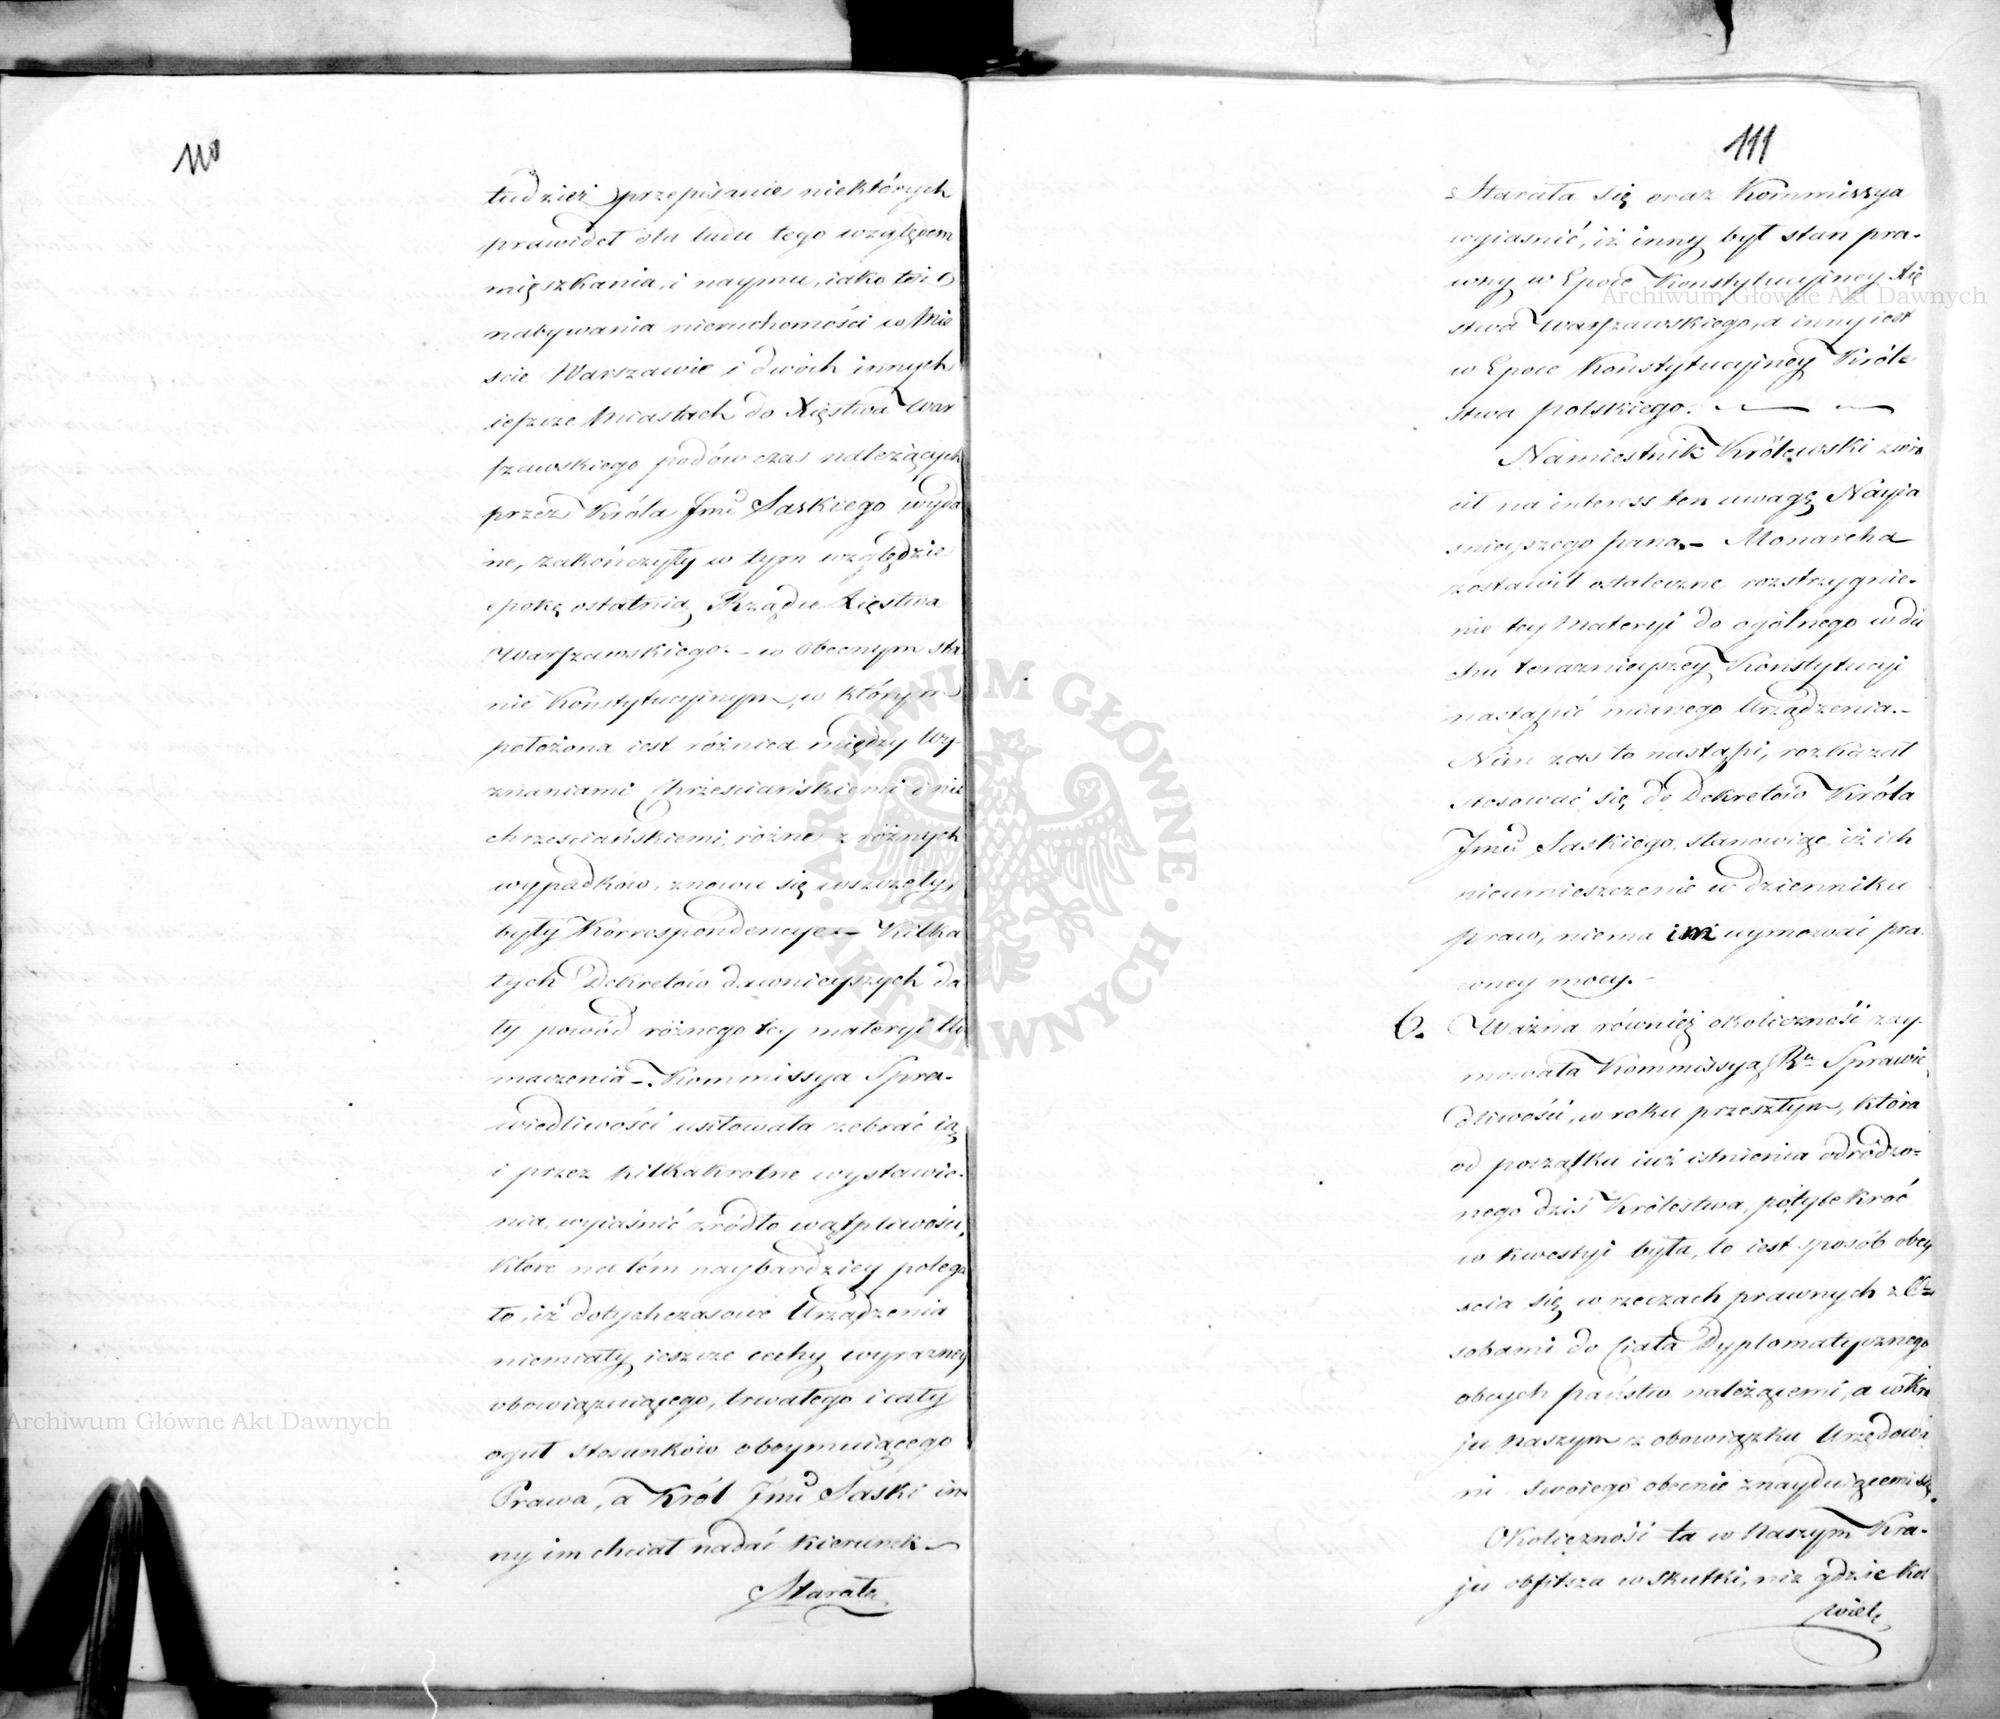 110
tudzież przepisanie niektórych
prawideł dla ludu tego względem
mięszkania, i naymu, iako też
nabywania nieruchomości w Mie
ście Warszawie i dwóch innych
ieszcze Miastach do Xięstwa War
szawskiego podówczas należących
przez Króla Jmci Saskiego wyda
ne, zakończyły w tym względzie
epokę ostatnią Rządu Xięstwa
Warszawskiego. – w obecnym sta
nie Konstytucyinym, w którym
położona iest różnica między Wy-
znaniami Chrześciańskiemi i nie
chrześciańskiemi, różne z różnych
wypadków, znowu się wszczęły
były Korrespondencye – Kilka
tych Dekretów dawnieyszych da
ły powód różnego tey materyi tłó
maczenia –. Kommissya Spra-
wiedliwości usiłowała zebrać ią
i przez kilkakrotne wystawie-
nia, wyiaśnić źródło wątpliwości,
które na tém naybardziey polega
ło, iż dotychczasowe Urządzenia
niemiały ieszcze cechy wyraźney
obowiązuiącego, trwałego i cały
oguł stosunków obeymuiącego
Prawa, a Król Jmci Saski in
ny im chciał nadać kierunek –
Starała
111
Starała się oraz Kommissya
wyiasnić, iż inny był stan pra-
wny w Epoce Konstytucyiney Xię
stwa Warszawskiego, a inny iest
w Epoce Konstytucyiney Króle
stwa polskiego. –
Namiestnik Królewski zwró
cił na interess ten uwagę Nayia
śnieyszego pana. – Monarcha
zostawił ostateczne rozstrzygnie-
nie tey Materyi do ogólnego w du
chu teraznieyszey Konstytucyi
nastąpić mianego Urządzenia. –
Nim zas to nastąpi, rozkazał
stosować się do Dekretów Króla
Jmci Saskiego, stanowiąc, iż ich
nieumieszczenie w dzienniku
praw, niema im uymować pra
wney mocy. –
6. Ważna również okoliczność zay-
mowała Kommissyą R. Sprawie
dliwości, w roku przeszłym, która
od początku iuż istnienia odrodzo=
nego dziś Królestwa, potylekroć
w kwestyi była, to iest sposób obey
ścia się w rzeczach prawnych z O=
sobami do Ciała Dyplomatycznego
obcych państw należącemi, a w Kra
ju Naszym z obowiązku Urzędowa
nia swoiego obecnie znayduiącemi się.
Okoliczność ta w Naszym Kra-
ju obfitsza w skutki, niż gdzie kol
wiek,
ARCHIWUM GŁÓWNE AKT DAWNYCH
Archiwum Główne Akt Dawnych
Archiwum Główne Akt Dawnych